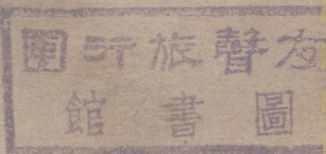 友聲旅行團
圖書館